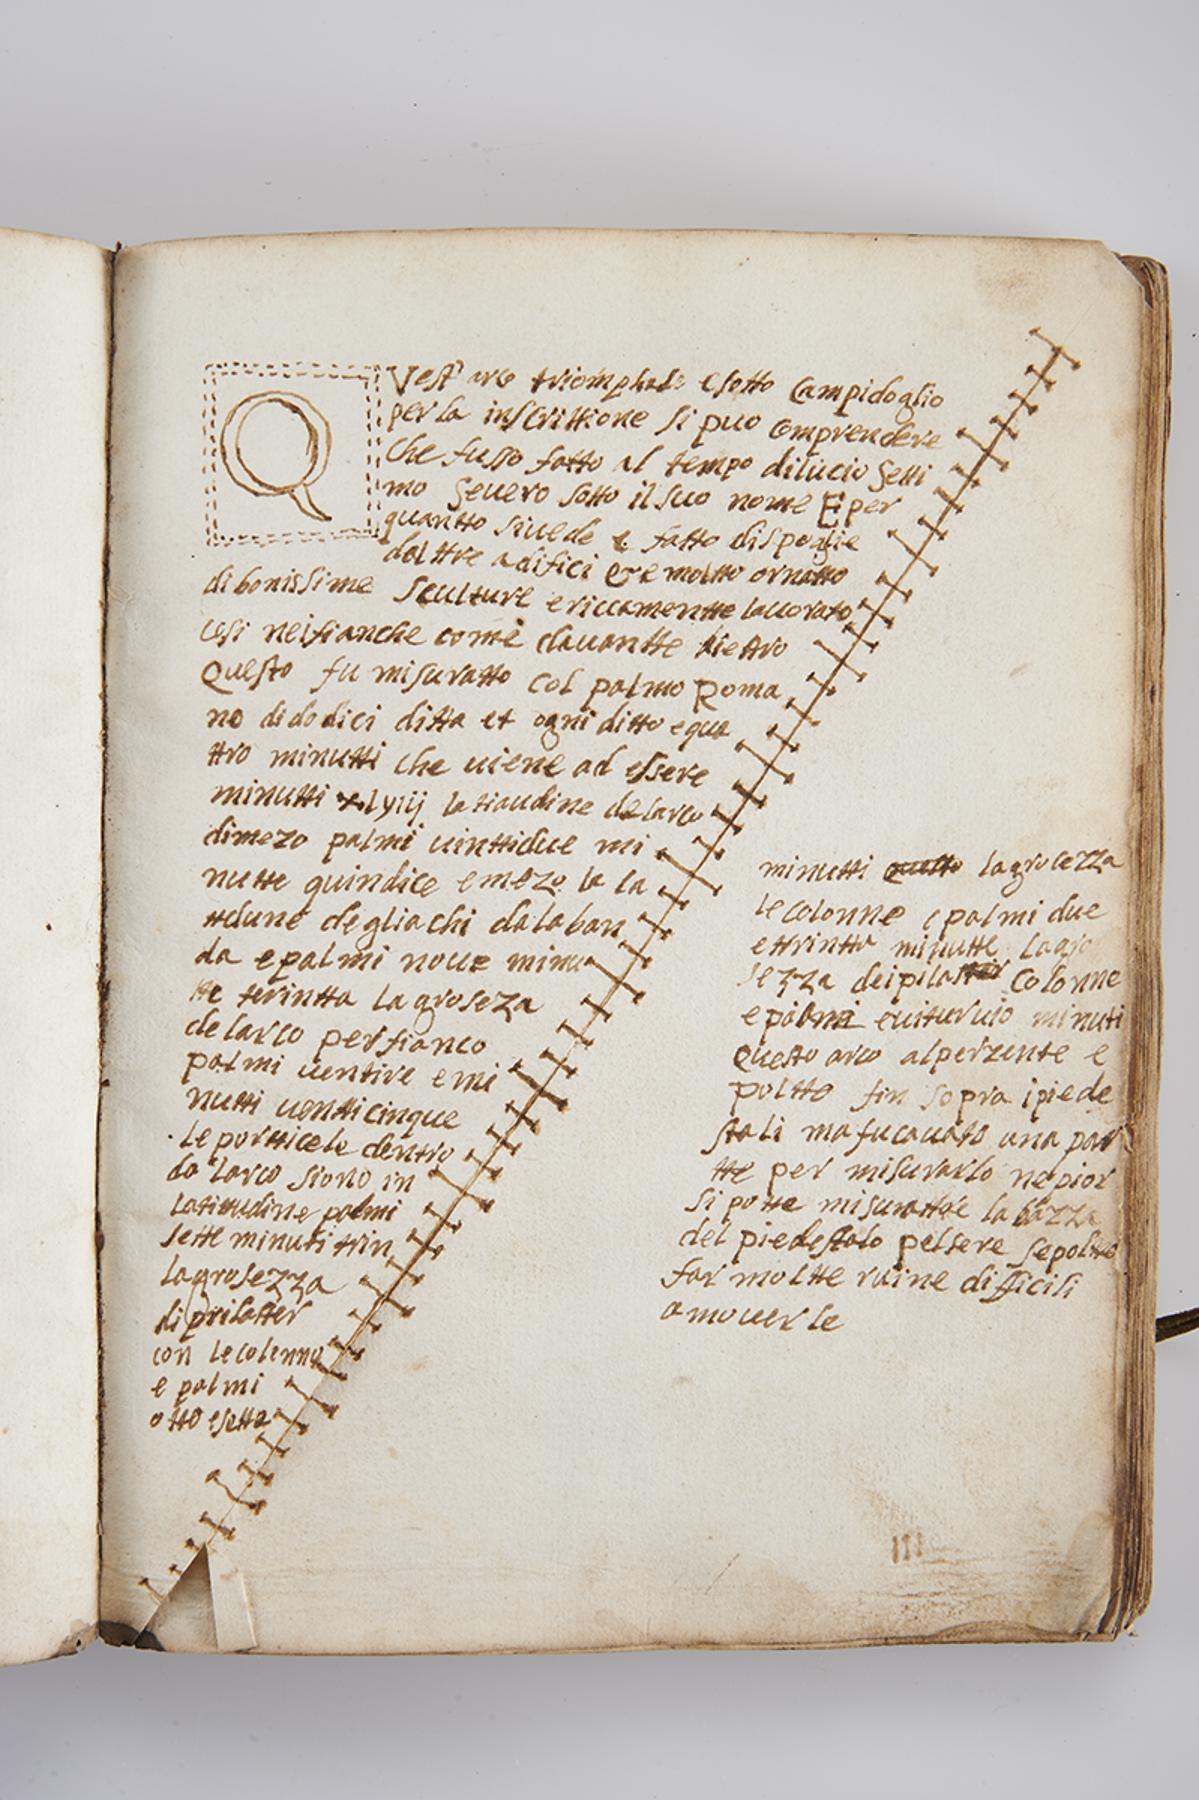 Q
Vest' arco triomphale e sotto Campidoglio
per la inscrittione si puo comprendere
che fusso fatto al tempo di lucio Setti
mo Seuero sotto il suo nome E per
quantto si uede e fatto di spoglie
dal ttre adifici et e moltto ornatto
di bonissime Sculture e riccamentte lauorato
cosi nei fianche come dauantte dietro
Questo fu misuratto col palmo Roma
no di dodici ditta et ogni ditto e qua
ttro minutti che uiene ad essere
minutti xlyiij la tiaudine de larco
di mezo palmi uinttidue mi
nutte quindice e mezo la la
ttdune de gli achi da la ban
da e palmi noue minu
tte terintta la groseza
de larco per fianco
palmi uentire e mi
nutti uentti cinque
Le portticele dentro
da larco siono in
latitudine palmi
sette minuti trin
la grosezza
di prilaster
con le colenno
e palmi
otto e sette
minutti la grocezza
le colonne e palmi due
e ttrintta minutte la gro
sezza dei pilaster Colonne
e palmi minuti
Questo arco al perzente e
poltto fin sopra i piede
stali ma fu cauato una par
tte per misurarlo ne pior
si potte misurattre la bazza
del piedestalo pelsere sepolto
far moltte ruine difficili
a mouerle
III